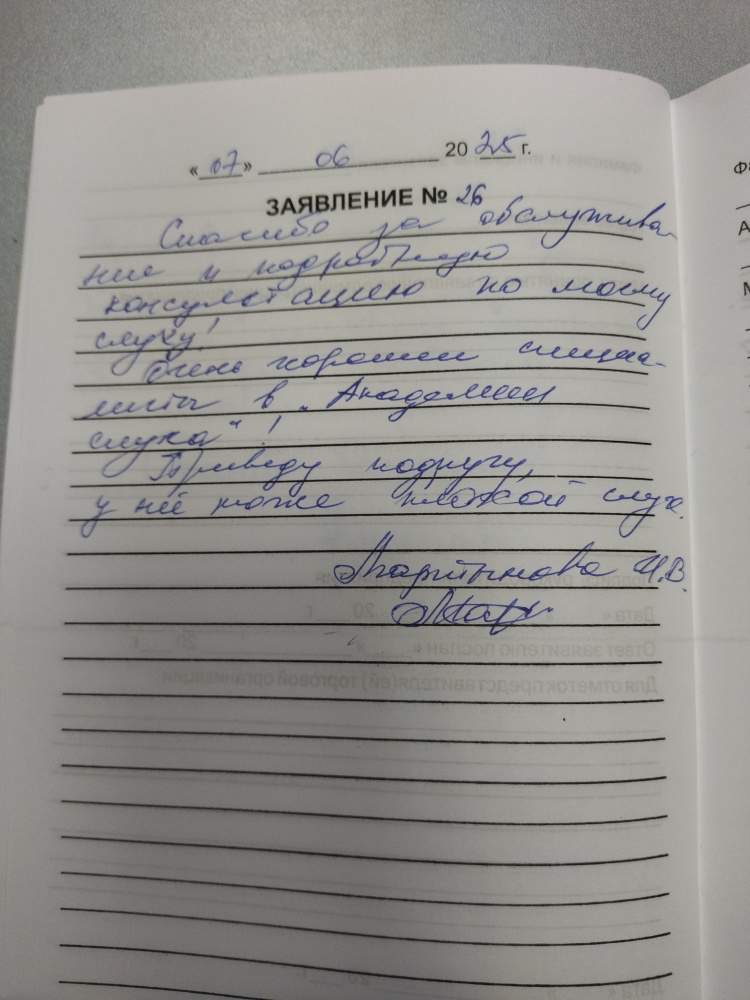 «07» 06 2025 г.
ЗАЯВЛЕНИЕ № 26
Спасибо за обслужива-
ние и подробную
консультацию по моему
слуху!
Очень хорошии специа-
листы в „Академии
слуха“!
Приведу подругу,
у неё тоже плохой слух.
Мартынова И.В.